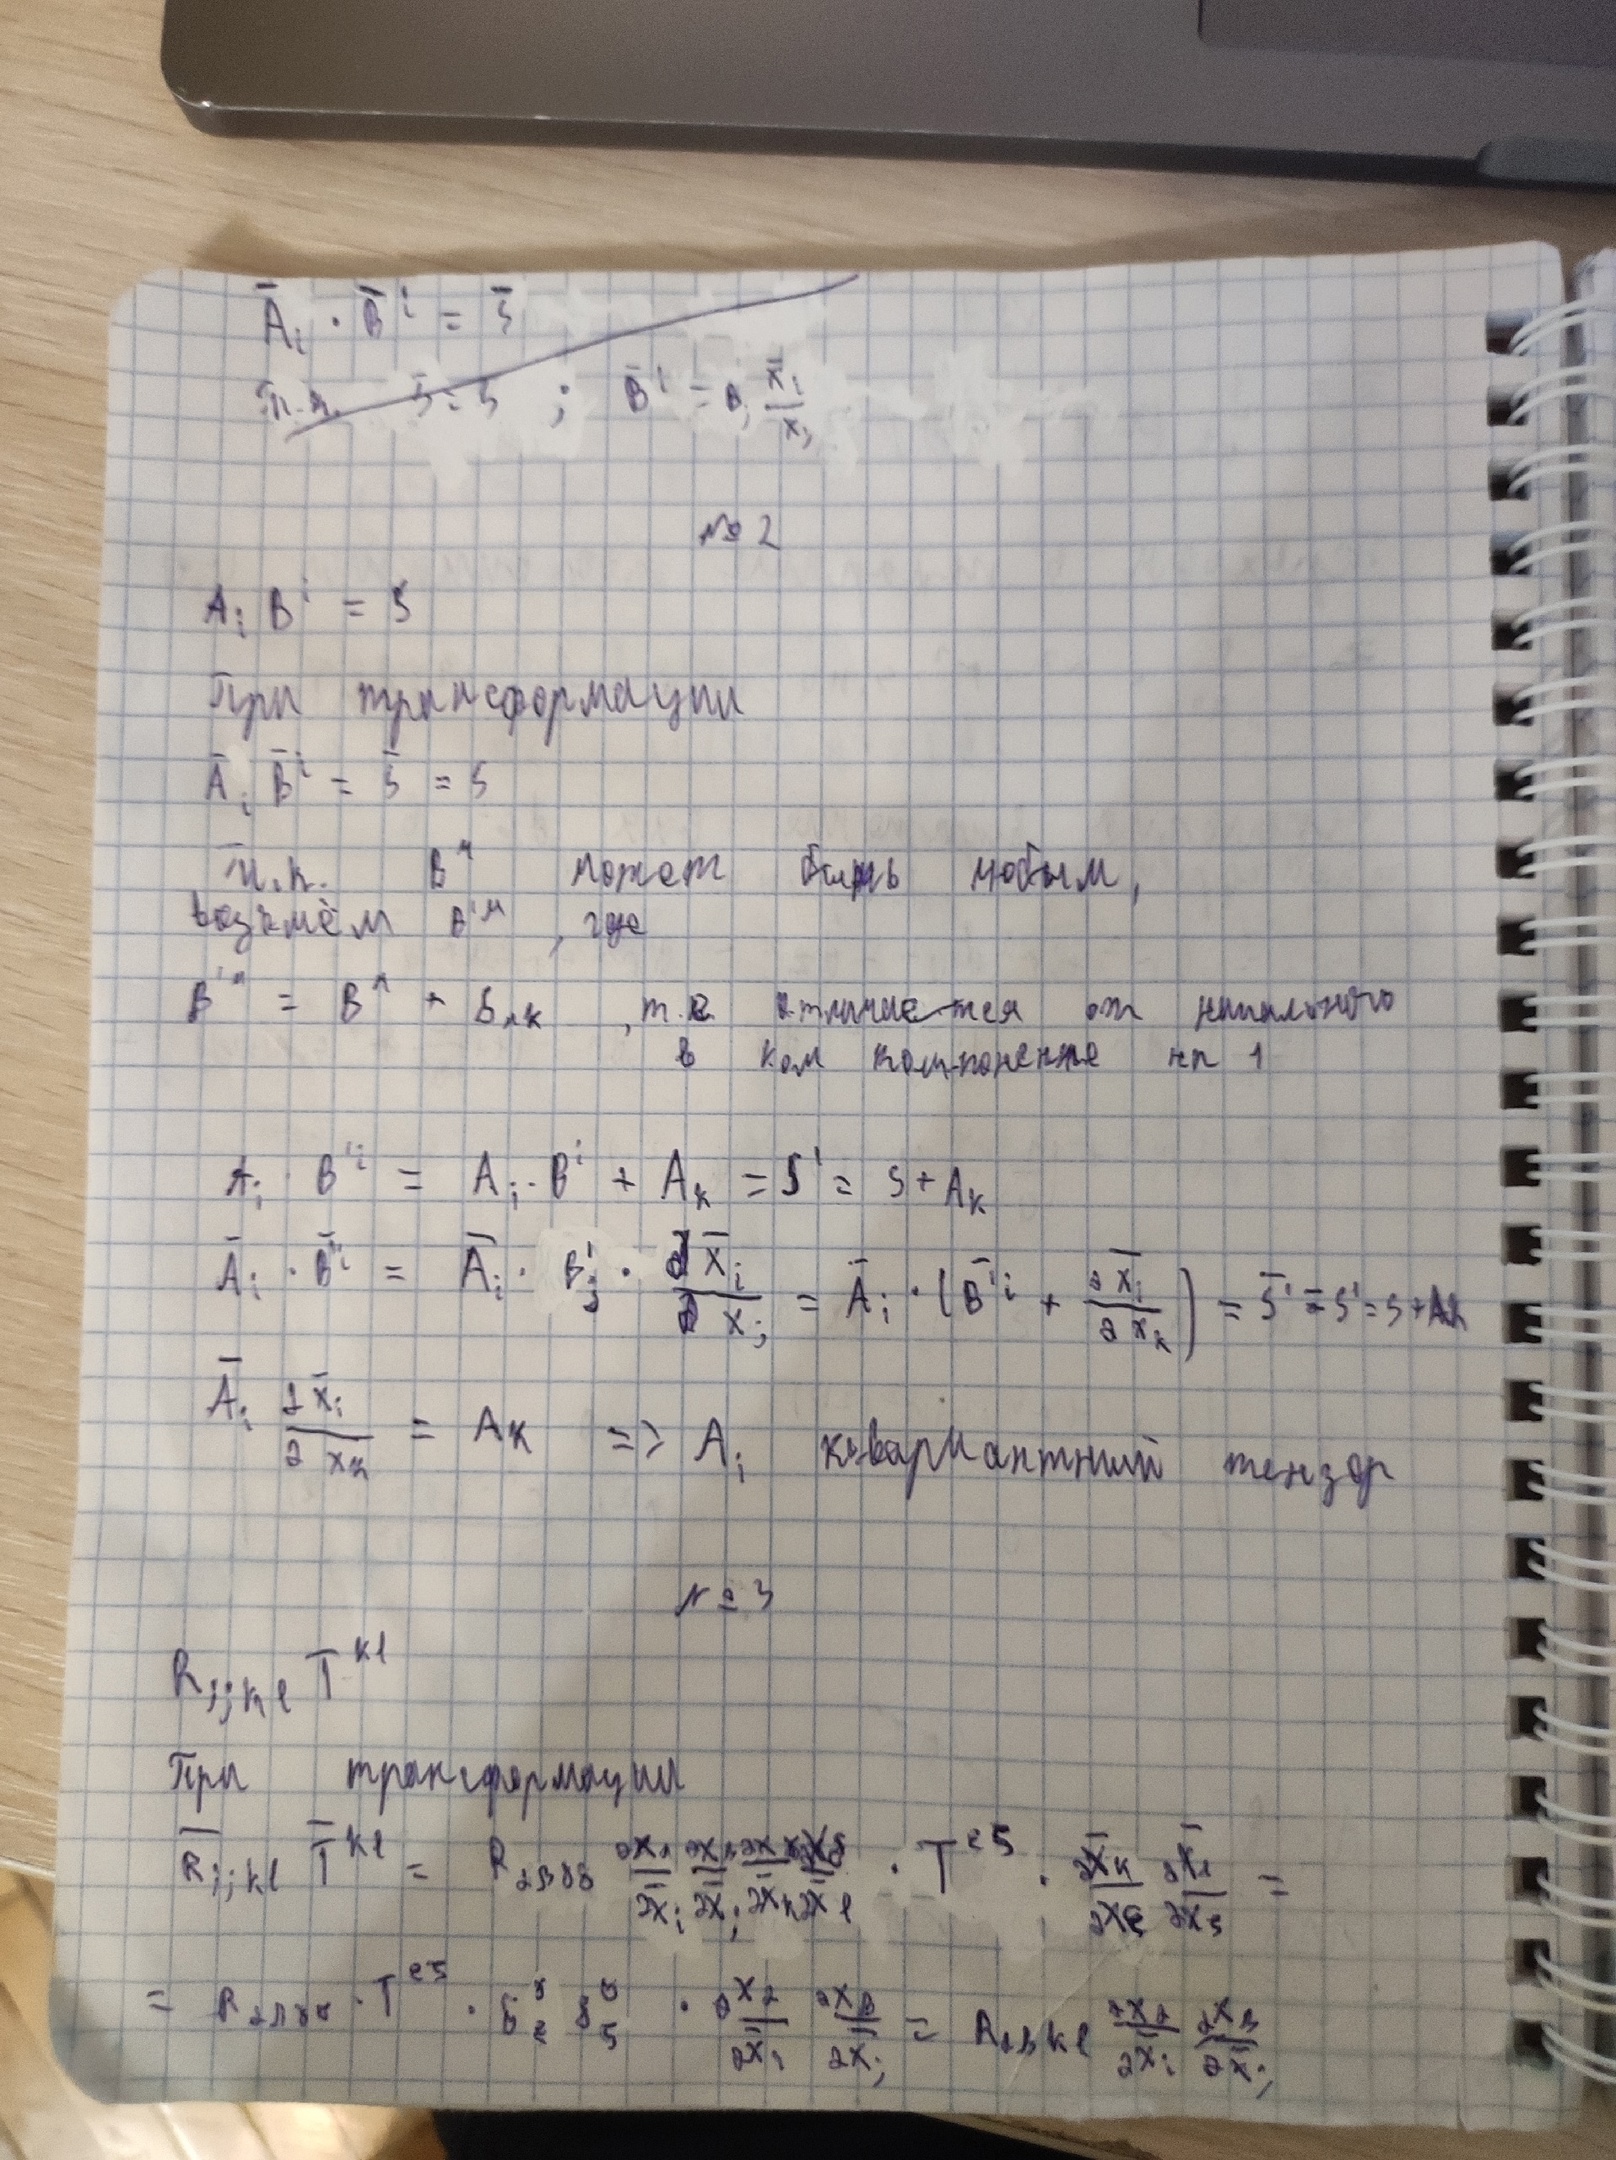 Ā_i · B̄^i = S̄
т.к. S̄ = S ; B̄^i = B_j x̄_i / x_j
№2
A_i B^i = S
При трансформации
Ā_i B̄^i = S̄ = S
т.к. B^n может быть любым,
возьмём B'^n, где
B'^n = B^n + δ_nk, т.е. отличается от начального
в ком компоненте на 1
A_i · B'^i = A_i · B^i + A_k = S' = S + A_k
Ā_i · B̄'^i = Ā_i · B'_j · ∂x̄_i / ∂x_j = Ā_i · (B̄'^i + ∂x̄_i / ∂x_k) = S̄' = S' = S + A_k
Ā_i ∂x̄_i / ∂x_k = A_k => A_i ковариантный тензор
№3
R_ijkl T^kl
При трансформации
R̄_ijkl T̄^kl = R_αβγδ ∂x_α/∂x̄_i ∂x_β/∂x̄_j ∂x_γ/∂x̄_k ∂x_δ/∂x̄_l · T^εζ · ∂x̄_k/∂x_ε ∂x̄_l/∂x_ζ =
= R_αβγδ · T^εζ · δ^γ_ε δ^δ_ζ · ∂x_α/∂x̄_i ∂x_β/∂x̄_j = R_αβkl ∂x_α/∂x̄_i ∂x_β/∂x̄_j